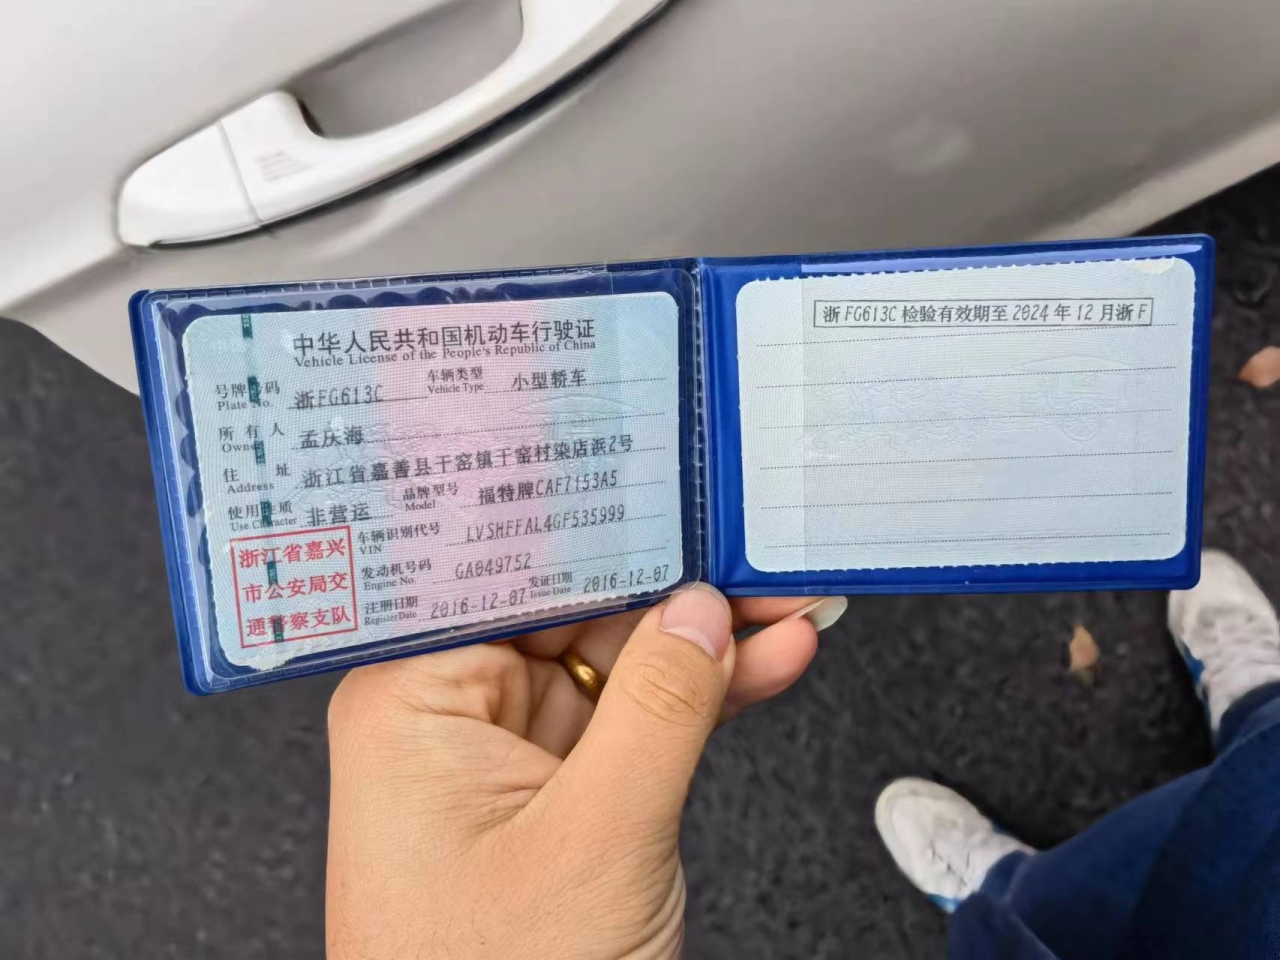 中华人民共和国机动车行驶证
Vehicle License of the People's Republic of China
号牌号码 浙FG613C 车辆类型 小型轿车
Plate No. Vehicle Type
所有人 孟庆海
Owner
住址 浙江省嘉善县干窑镇干窑村染店浜2号
Address
使用性质 非营运 品牌型号 福特牌CAF7153A5
Use Character Model
浙江省嘉兴
市公安局交
通警察支队
车辆识别代号 LVSHFFAL4GF535999
VIN
发动机号码 GA049752
Engine No.
注册日期 2016-12-07 发证日期 2016-12-07
Register Date Issue Date
浙FG613C 检验有效期至 2024 年 12 月浙F